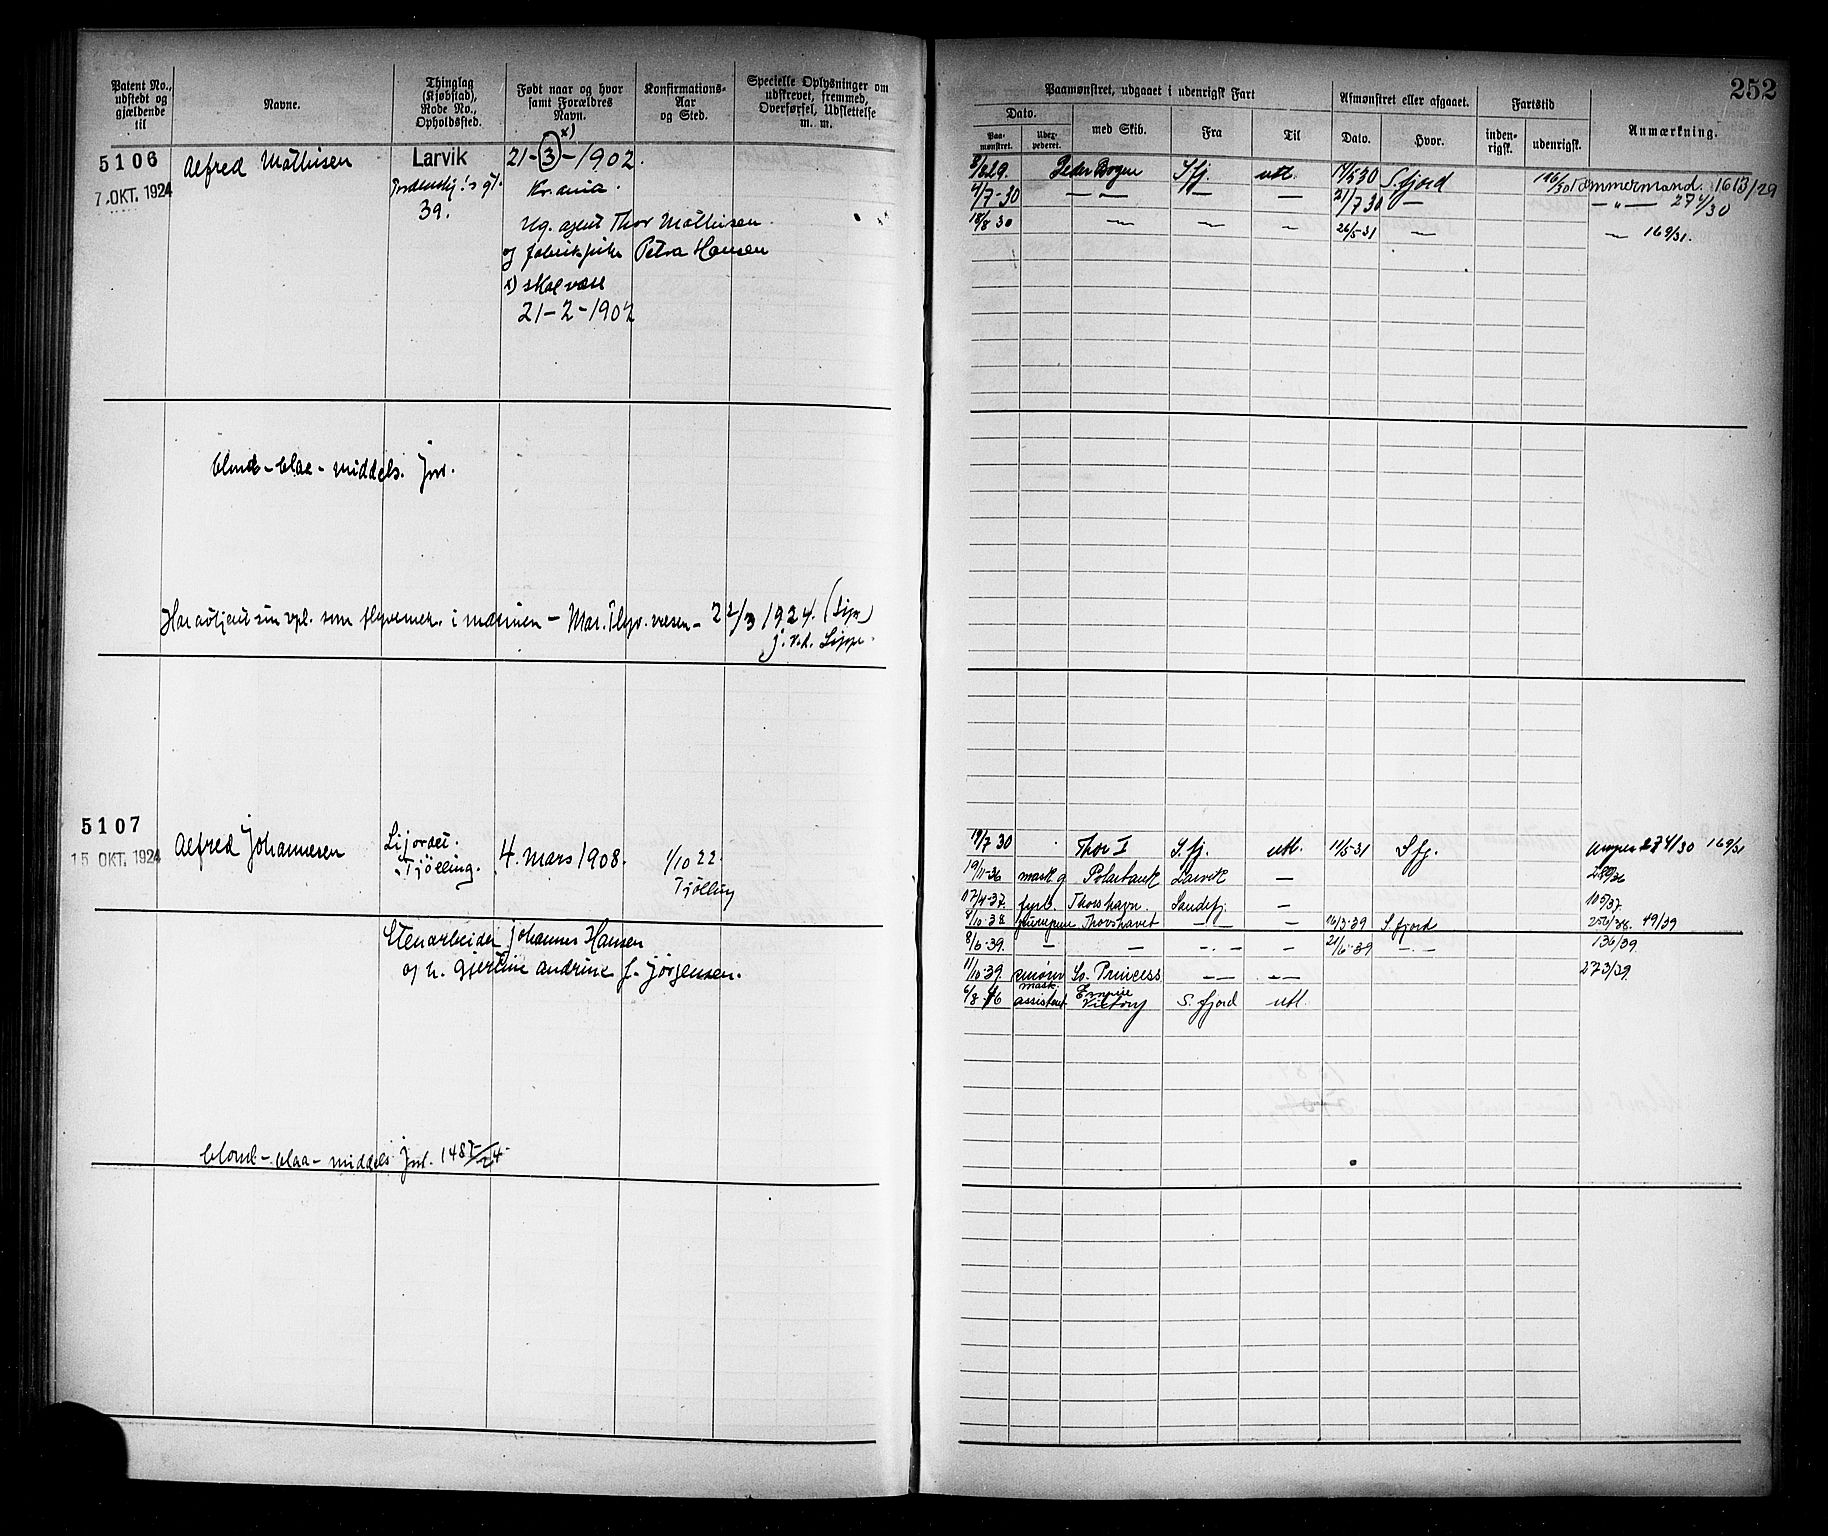 252
Patent No., udstedt og gjældende til
Navne.
Thinglag (Kjøbstad), Rode No., Opholdssted.
Født naar og hvor samt Forældres Navn.
Konfirmations-Aar og Sted.
Specielle Oplysninger om udskrevet, fremmed, Overførsel, Udslettelse m. m.
Paamønstret, udgaaet i udenrigsk Fart
Afmønstret eller afgaaet.
Fartstid
Anmærkning.
Dato.
Paa-mønstret.
med Skib.
Fra
Til
Dato.
Hvor.
inden-rigsk.
udenrigsk.
5106
7. OKT. 1924
Alfred Mathisen
Larvik
39.
x)
21-3-1902.
Kr.ania.
Ug. agent Thor Mathisen
og fabrikpike Petra Hansen
x) skal være
21-2-1902
8/6 29 Peder Bogen S.fj. utl. 14/6 30 S.fjord 196/30 Tømmermand. 1613/29
4/7-30 — — — — 21/7 30 — —"— 274/30
18/8 30 — — — 26/5-31 — — 169/31.
blond-blaa-middels. Jnl.
Har avtjent sin vpl. som flyvemek. i marinen - Mar. Flyv. vesen - 22/3 1924. (Sign)
5107
15. OKT. 1924
Alfred Johannesen
Lijordet.
Tjølling.
4. mars 1908.
1/10 22.
Tjølling
Stenarbeider Johannes Hansen
og h. Gjertine Andrine f. Jørgensen.
19/7 30 Thor I S.fj. utl. 11/5-31 S fj. 274/30 169/31
19/11-36 Polarbank Larvik —
17/4-37. fyrb. Thorshavn. Sandefj. 105/37.
8/10-38 Thorshavet — — 16/3-39 S.fjord 256/38. 49/39
8/6-39. — — -.- — 21/6-39 -.- 136/39
11/10-39. smører So. Princess -- -- 273/39.
6/8-46 mask. assistent Empire Victory S. fjord utl.
blond-blaa-middels Jnl. 1487/24.